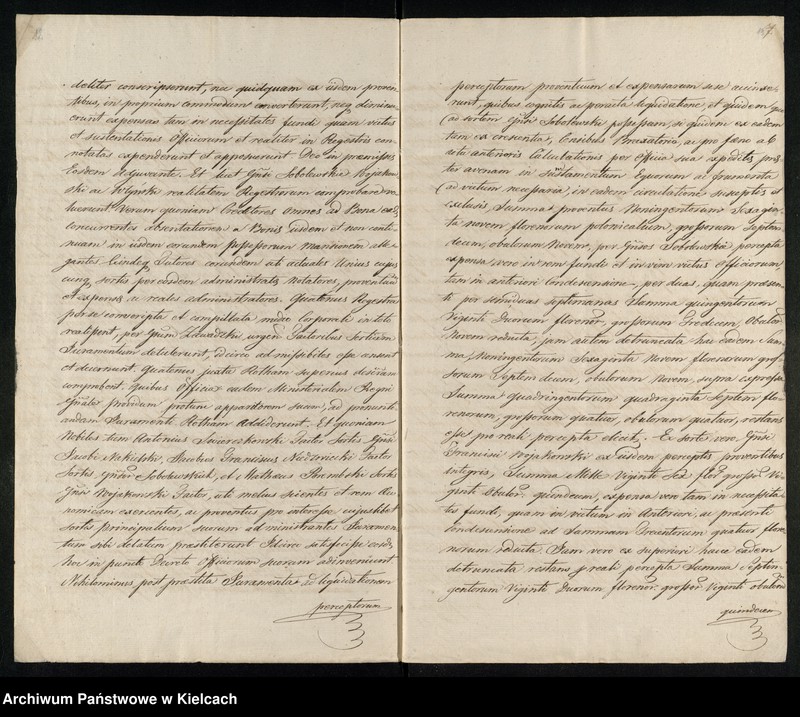 deliter conscripserunt, nec quidquam ex iisdem proven
tibus, in proprium commodum converterunt, neq diminu
erunt expensas tam in necessitates fundi quam victus
et sustentationes Officiorum et realiter in Regestris con
notatas expenderunt et apposuerunt Deo in praemissis
Eosdem Adjuvante. Et licet Gnsi Sobolewski Wojakow
ski ac realitatem Regestrorum comprobare vo
luerunt. Verum quoniam Creditores omnes ad Bona
concurrentes absentationem a Bonis iisdem et non conti
nuam in iisdem eorundem possessorum mansionem alle
gantes Eosdeq Tutores eorundem uti actuales Unius cujus
cunq sortis per eosdem administratae Notatores, proventuum
et expensae ac reales administratores. Quatenus Regestra
per se conscripta et compillata medio Corporali in toto
realissent, per Gnum Zawadzki urgen Tutoribus Sortium
Juramentum detulerunt, idcirco admissibiles esse censent
et decernunt. Quatenus juxta Rotham superius descriptam
comprobent. Quibus Officia eadem Ministerialem Regni
Gnalem providum ad praenunti
andam Juramenti Rotham Addiderunt. Et quoniam
Nobiles tum Antonius Swierczkowski Tutor Sortis Gnsi
Jacobi Nakielski, Jacobus Franciscus Niedzwiecki Tutor
Sortis Gnsor Sobolewskich, et Mathaeus Porembski Sortis
Gnsi Wojakowski Tutor, uti melius scientes et rem Oeco
nomicam exercentes, ac proventus pro interesse cujuslibet
Sortis Principalium suorum administrantes Juramen
tum sibi delatum praestiterunt Idcirco satisfecisse eosd
hoc in puncto Decreto Officiorum suorum adinvenerunt
Nihilominus post praestita Juramenta ad liquidationem
perceptorum
7.
perceptorum proventuum et expensarum sese accinxe
runt, quibus cognitis ac peracta liquidatione, et quidem quo
(ad sortem Gnsi Sobolewski possessam, siquidem ex eadem
tam ex crescentia, Censibus Braxatoria, ac pro faeno ab
acta anterioris Calculationis per Officia sua expeditis prae
ter avenam in Sustentamentum Equorum ac frumenta
(ad victum necessaria, in eadem circulatione susceptis et
exclusis, Summa proventus Noningentorum Sexagin
ta novem florenorum polonicalium, grossorum Septem
decem, obulorum Novem, per Gnsos Sobolewski percepta
expensa vero in rem fundi et in rem victus Officiorum
tam in anteriori Condescensione, per duas, quam praesen
ti per semiduas septimanas Summa quingentorum
Viginti Duorum florenor, grossorum Tredecim, Obulor
Novem reducta, jam autem detruncata hac eadem Sum
ma, Noningentorum Sexaginta Novem florenorum gros
sorum Septem decem, obulorum Novem, supra expressa
Summa Quadringentorum quadraginta Septem flo
renorum, grossorum quatuor, obulorum quatuor, restans
esse pro reali percepta elicit. Ex Sorte vero Gnsi
Francisci Wojakowski ex iisdem perceptis proventibus
integris, Summa Mille Viginti Sex flor. grossor. Vi
ginti Obulor. quindecem, expensa vero tam in necessita
tes fundi, quam in victum in Anteriori, ac praesenti
Condescensione ad Summam Trecentorum quatuor flore
norum educta. Jam vero ex superiori hacce eadem
detruncata restans pro reali percepta Summa Septin
gentorum Viginti Duorum florenor. grossor Viginti obulor
quindecem
Archiwum Państwowe w Kielcach